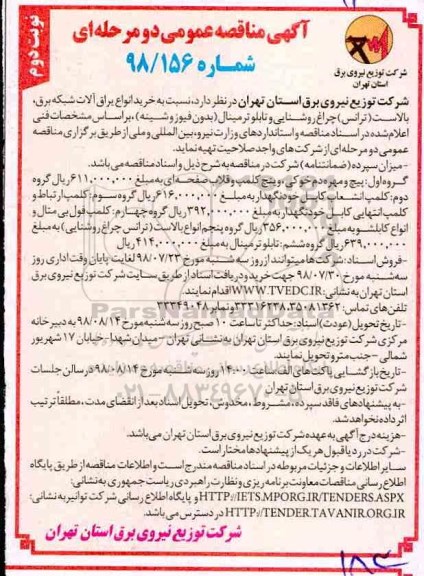 نوبت دوم
آگهی مناقصه عمومی دو مرحله‌ای
شماره ۹۸/۱۵۶
شرکت توزیع نیروی برق
استان تهران
شرکت توزیع نیروی برق استان تهران در نظر دارد، نسبت به خرید انواع یراق آلات شبکه برق،
بالاست (ترانس) چراغ روشنایی و تابلو ترمینال (بدون فیوز و شینه)، بر اساس مشخصات فنی
اعلام شده در اسناد مناقصه و استانداردهای وزارت نیرو، بین المللی و ملی از طریق برگزاری مناقصه
عمومی دو مرحله‌ای از شرکت‌های واجد صلاحیت تهیه نماید.
-میزان سپرده (ضمانتنامه) شرکت در مناقصه به شرح ذیل و اسناد مناقصه می‌باشد.
گروه اول: پیچ و مهره دم خوکی، پیچ کلمپ و قلاب صفحه‌ای به مبلغ ۶۱۱,۰۰۰,۰۰۰ ریال گروه
دوم: کلمپ انشعاب و کابل خودنگهدار به مبلغ ۶۱۶,۰۰۰,۰۰۰ ریال گروه سوم: کلمپ ارتباط و
کلمپ انتهایی کابل خودنگهدار به مبلغ ۳۹۲,۰۰۰,۰۰۰ ریال گروه چهارم: کلمپ فول بی متال و
انواع کابلشو به مبلغ ۳۵۶,۰۰۰,۰۰۰ ریال گروه پنجم انواع بالاست (ترانس چراغ روشنایی) به مبلغ
۶۳۹,۰۰۰,۰۰۰ ریال گروه ششم: تابلو ترمینال به مبلغ ۴۱۴,۰۰۰,۰۰۰ ریال
-فروش اسناد: شرکت‌ها میتوانند از روز سه شنبه مورخ ۹۸/۰۷/۲۳ لغایت پایان وقت اداری روز
سه‌شنبه مورخ ۹۸/۰۷/۳۰ جهت خرید و دریافت اسناد از طریق سایت شرکت توزیع نیروی برق
استان تهران به نشانی: WWW.TVEDC.IR اقدام نمایند.
تلفن‌های تماس: ۳۵۰۸۱۳۶۲، ۳۳۳۱۶۲۳۸ و نمابر ۳۳۳۴۹۰۴۸
-تاریخ تحویل (عودت) اسناد: حداکثر تا ساعت ۱۰ صبح روز سه شنبه مورخ ۹۸/۰۸/۱۴ به دبیرخانه
مرکزی شرکت توزیع نیروی برق استان تهران به نشانی تهران - میدان شهدا - خیابان ۱۷ شهریور
شمالی - جنب مترو تحویل نمایند.
-تاریخ بازگشایی پاکت‌های الف ساعت ۱۴:۰۰ روز سه شنبه مورخ ۹۸/۰۸/۱۴ در سالن جلسات
شرکت توزیع نیروی برق استان تهران
-به پیشنهادهای فاقد سپرده، مشروط، مخدوش، تحویل اسناد بعد از انقضای مدت، مطلقاً ترتیب
اثر داده نخواهد شد.
-هزینه درج آگهی به عهده شرکت توزیع نیروی برق استان تهران می‌باشد.
-شرکت در رد یا قبول هر یک از پیشنهادها مختار است.
سایر اطلاعات و جزئیات مربوطه در اسناد مناقصه مندرج است و اطلاعات مناقصه از طریق پایگاه
اطلاع رسانی مناقصات معاونت برنامه ریزی و نظارت راهبردی ریاست جمهوری به نشانی:
HTTP://IETS.MPORG.IR/TENDERS.ASPX و پایگاه اطلاع رسانی شرکت توانیر به نشانی:
HTTP://TENDER.TAVANIR.ORG.IR در دسترس می باشد.
شرکت توزیع نیروی برق استان تهران